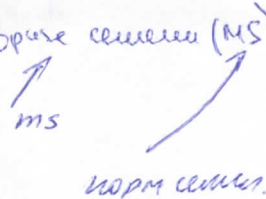 семени (MS
ms
норм семен.